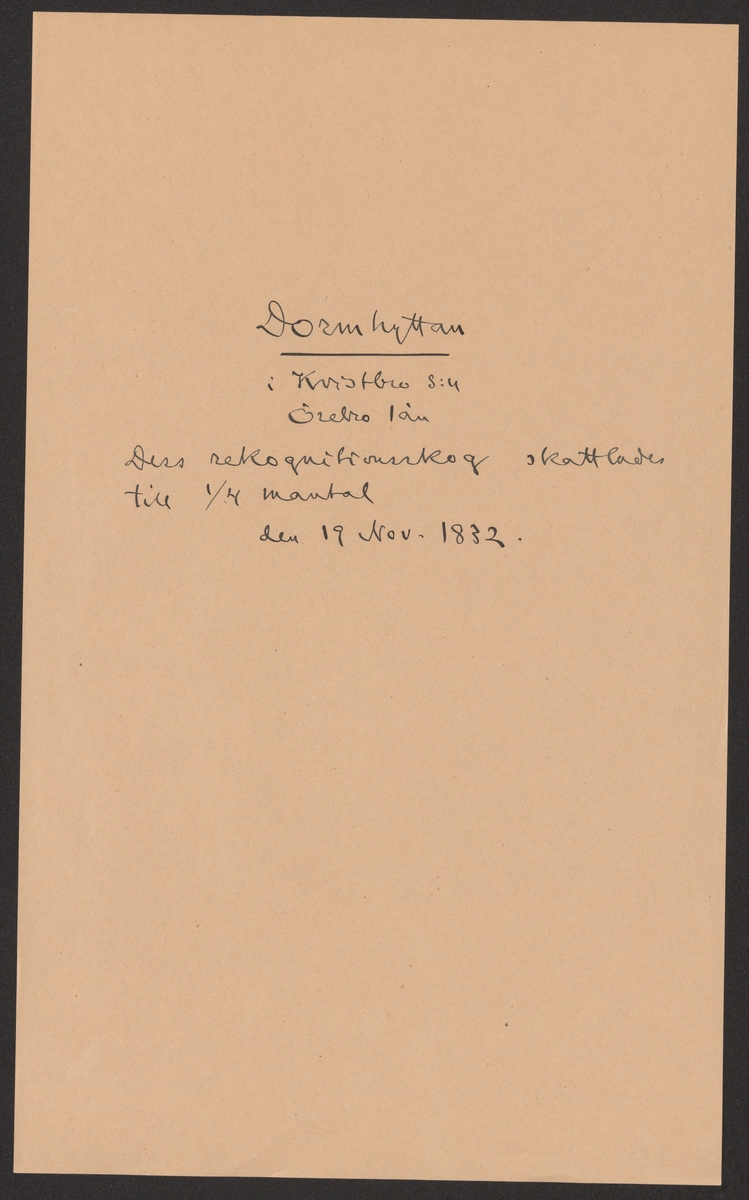 Dormhyttan
i Kvistbro s:n
Örebro län
Dess rekognitionsskog skattlades
till 1/4 mantal
den 19 Nov. 1832.